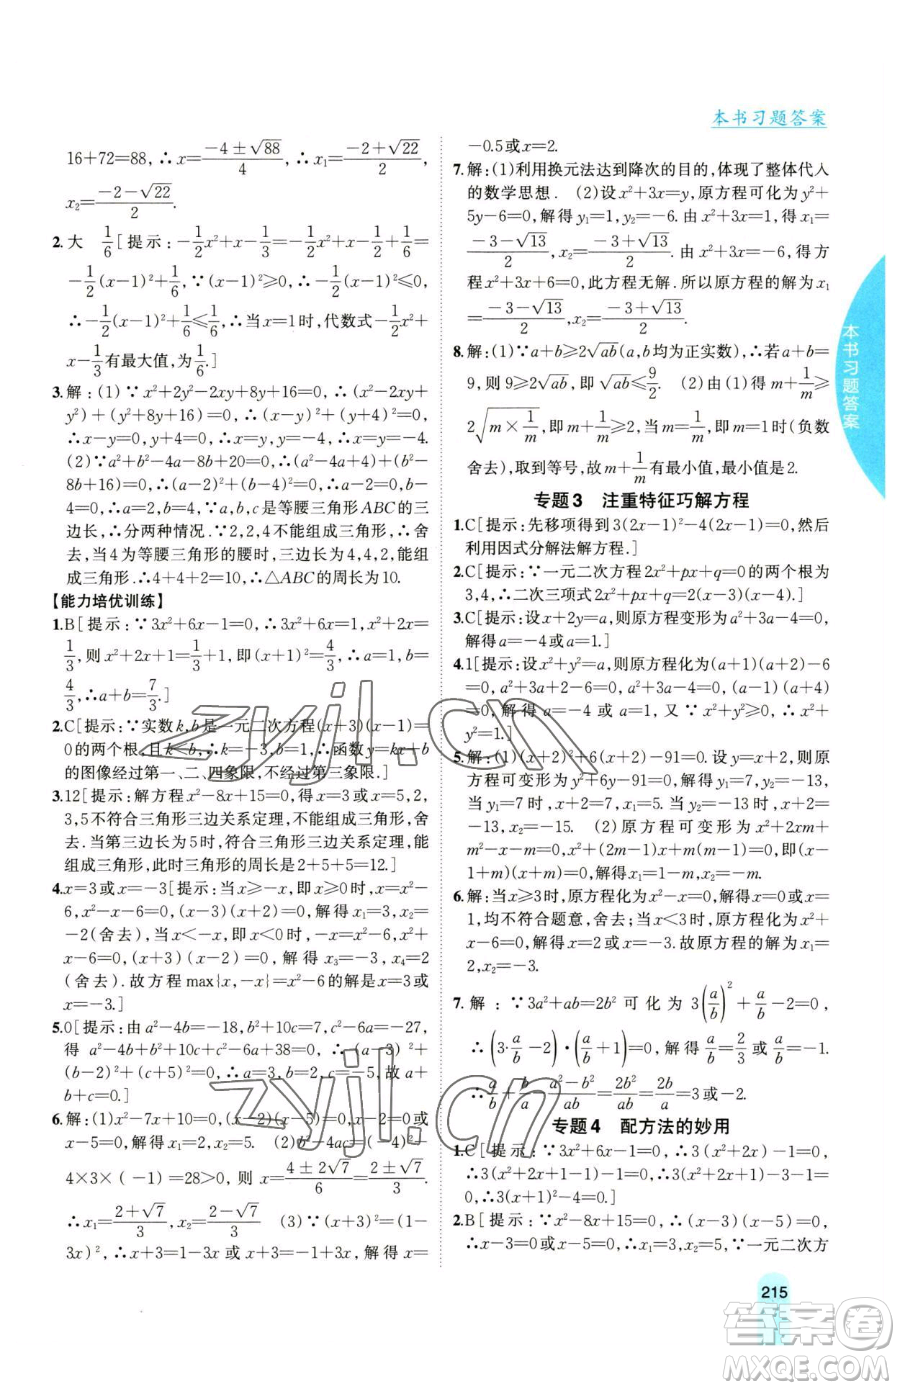 本书习题答案
16+72=88, ∴x=(-4±√88)/4, ∴x₁=(-2+√22)/2,
x₂=(-2-√22)/2.
2.大 1/6[提示:-1/2x²+x-1/3=-1/2x²+x-1/2+1/6=
-1/2(x-1)²+1/6,∵(x-1)²≥0,∴-1/2(x-1)²≤0,
∴-1/2(x-1)²+1/6≤1/6,∴当x=1时,代数式-1/2x²+
x-1/3有最大值,为1/6.]
3.解:(1)∵x²+2y²-2xy+8y+16=0,∴(x²-2xy+
y²)+(y²+8y+16)=0,∴(x-y)²+(y+4)²=0,
∴x-y=0,y+4=0,∴y=-4,x=-4.
(2)∵a²+b²-4a-8b+20=0,∴(a²-4a+4)+(b²-
8b+16)=0,∴(a-2)²+(b-4)²=0,∴a-2=0,
b-4=0,∴a=2,b=4,∵a,b,c是等腰三角形ABC的三
边长,∴分两种情况:①2,2,4不能组成三角形,∴舍
去,当4为等腰三角形的腰时,三边长为4,4,2,能组
成三角形.∴4+4+2=10,∴△ABC的周长为10.
【能力培优训练】
1.B[提示:∵3x²+6x-1=0,∴3x²+6x=1,x²+2x=
1/3,则x²+2x+1=1/3+1,即(x+1)²=4/3,∴a=1,b=
4/3,∴a+b=7/3.]
2.C[提示:∵实数k,b是一元二次方程(x+3)(x-1)=
0的两个根,且k<b,∴k=-3,b=1,∴函数y=kx+b
的图像经过第一、二、四象限,不经过第三象限.]
3.12[提示:解方程x²-8x+15=0,得x=3或x=5,2,
3,5不符合三角形三边关系定理,不能组成三角形,舍
去.当第三边长为5时,符合三角形三边关系定理,能
组成三角形,此时三角形的周长是2+5+5=12.]
4.x=3或x=-3[提示:当x≥-x,即x≥0时,x=x²-
6,x²-x-6=0,(x-3)(x+2)=0,解得x₁=3,x₂=
-2(舍去),当x<-x,即x<0时,-x=x²-6,x²+
x-6=0,(x+3)(x-2)=0,解得x₃=-3,x₄=2
(舍去).故方程max{x,-x}=x²-6的解是x=3或
x=-3.]
5.0[提示:由a²-4b=-18,b²+10c=7,c²-6a=-27,
得a²-4b+b²+10c+c²-6a+38=0,∴(a-3)²+
(b-2)²+(c+5)²=0,∴a=3,b=2,c=-5,故a+
b+c=0.]
6.解:(1)x²-7x+10=0,(x-2)(x-5)=0,x-2=0或
x-5=0,解得x₁=2,x₂=5. (2)b²-4ac=(-4)²-
4×3×(-1)=28>0,则x=(4±2√7)/6=(2±√7)/3.
∴x₁=(2+√7)/3,x₂=(2-√7)/3. (3)∵(x+3)²=(1-
3x)²,∴x+3=1-3x或x+3=-1+3x,解得x=
-0.5或x=2.
7.解:(1)利用换元法达到降次的目的,体现了整体代入
的数学思想. (2)设x²+3x=y,原方程可化为y²+
5y-6=0,解得y₁=1,y₂=-6. 由x²+3x=1,得x₁=
(-3-√13)/2,x₂=(-3+√13)/2. 由x²+3x=-6,得方
程x²+3x+6=0,此方程无解. 所以原方程的解为x₁
=(-3-√13)/2,x₂=(-3+√13)/2.
8.解:(1)∵a+b≥2√ab(a,b均为正实数),∴若a+b=
9,则9≥2√ab,即√ab≤9/2. (2)由(1)得m+1/m≥
2√(m×1/m),即m+1/m≥2,当m=1/m时,m=1时(负数
舍去),取到等号,故m+1/m有最小值,最小值是2.
专题3 注重特征巧解方程
1.C[提示:先移项得到3(2x-1)²-4(2x-1)=0,然后
利用因式分解法解方程.]
2.C[提示:∵一元二次方程2x²+px+q=0的两个根为
3,4,∴二次三项式2x²+px+q=2(x-3)(x-4).]
3.C[提示:设x+2y=a,则原方程变形为a²+3a-4=0,
解得a=-4或a=1.]
4.1[提示:设x²+y²=a,则原方程化为(a+1)(a+2)-6
=0,a²+3a+2-6=0,a²+3a-4=0,(a+4)(a-1)
=0,解得a=-4或a=1,又∵x²+y²>0,∴x²+
y²=1.]
5.解:(1)(x+2)²+6(x+2)-91=0,设x+2=y,则原
方程可变形为y²+6y-91=0,解得y₁=7,y₂=-13,
当y₁=7时,x+2=7,x₁=5. 当y₂=-13时,x+2=
-13,x₂=-15. (2)原方程可变形为x²+2xm+
m²-x-m-2=0,(x+m)²-(x+m)-2=0,即(x-
1+m)(x+1+m)=0,解得x₁=2-m,x₂=-1-m.
6.解:当x≥3时,原方程化为x²-x=0,解得x=0或x=
1,均不符合题意,舍去;当x<3时,原方程化为x²+
x-6=0,解得x=2或x=-3. 故原方程的解为x₁=
2,x₂=-3.
7.解:∵3a²+ab=2b²可化为3(a/b)²+a/b-2=0,
∴(3·a/b-2)·(a/b+1)=0,解得a/b=2/3或a/b=-1.
专题4 配方法的妙用
1.C[提示:∵3x²+6x-1=0,∴3(x²+2x)-1=0,
∴3(x²+2x+1-1)-1=0,∴3(x²+2x+1)-3-1=
0,∴3(x+1)²-4=0.]
2.B[提示:∵x²-8x+15=0,∴(x-3)(x-5)=0,
∴x-3=0或x-5=0,∴x₁=3,x₂=5,∵一元二次方
本书习题答案
215
zyjl.cn
zyjl.cn
答案圈
MXQE.COM